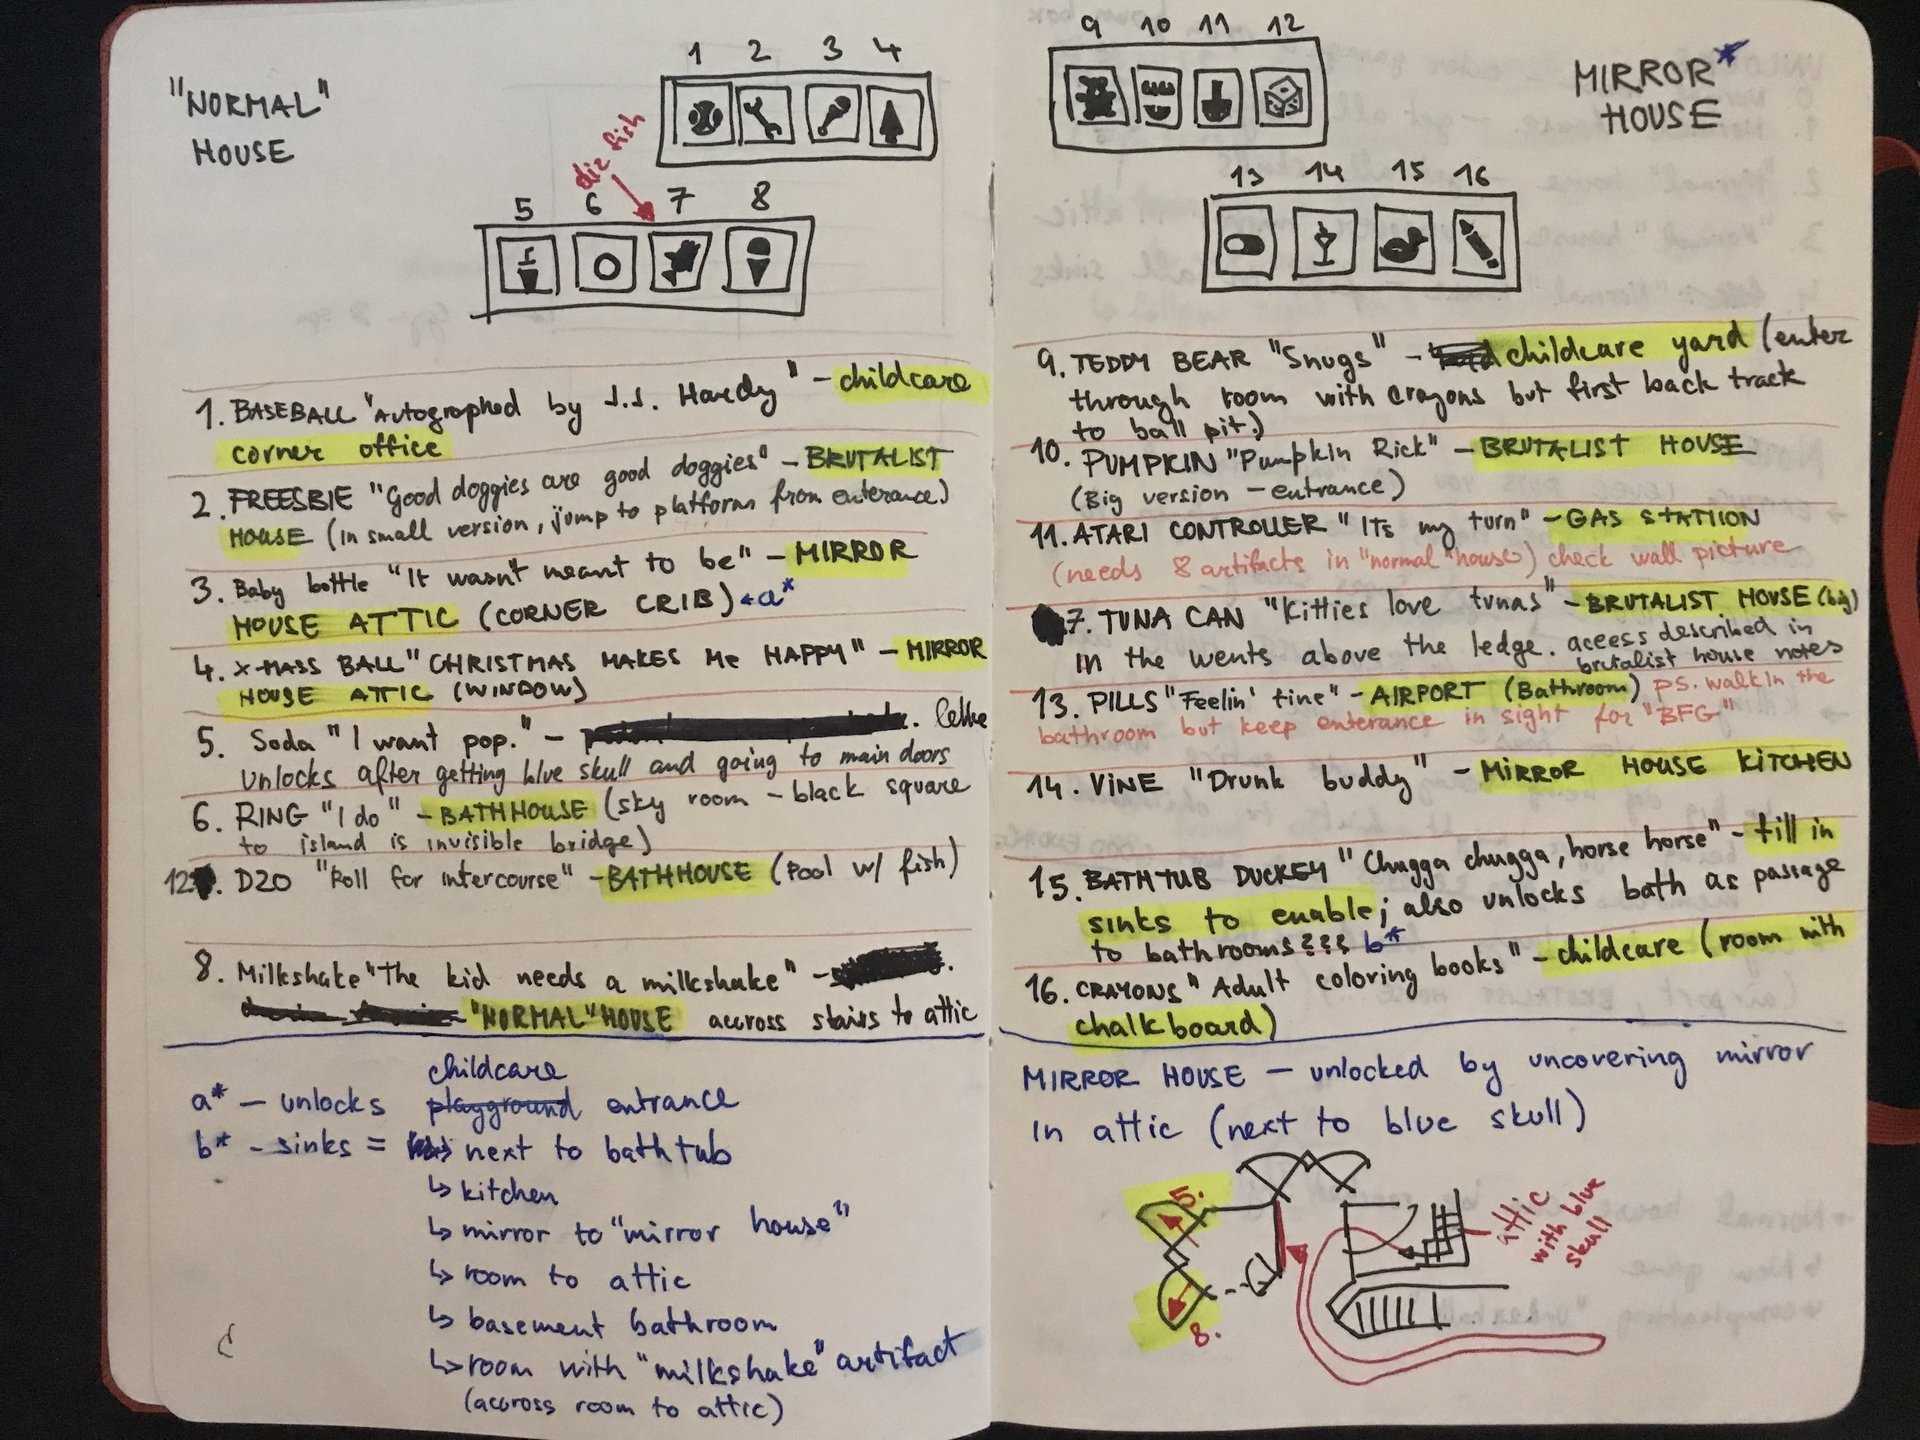 "NORMAL"
HOUSE
1 2 3 4
diz fish
5 6 7 8
1. BASEBALL "Autographed by J.J. Hardy" - childcare
corner office
2. FREESBIE "Good doggies are good doggies" - BRUTALIST
HOUSE (in small version, jump to platform from enterance)
3. Baby bottle "It wasn't meant to be" - MIRROR
HOUSE ATTIC (CORNER CRIB) ← a*
4. X-MASS BALL "CHRISTMAS MAKES Me HAPPY" - MIRROR
HOUSE ATTIC (WINDOW)
5. Soda "I want pop." -
unlocks after getting blue skull and going to main doors
6. RING "I do" - BATHHOUSE (sky room - black square
to island is invisible bridge)
12. D20 "Roll for intercourse" - BATHHOUSE (Pool w/ fish)
8. Milkshake "The kid needs a milkshake" -
"NORMAL" HOUSE accross stairs to attic
childcare
a* - unlocks playground entrance
b* - sinks = next to bathtub
↳ kitchen
↳ mirror to "mirror house"
↳ room to attic
↳ basement bathroom
↳ room with "milkshake" artifact
(accross room to attic)
9 10 11 12
MIRROR*
HOUSE
13 14 15 16
9. TEDDY BEAR "Snugs" - childcare yard (enter
through room with crayons but first back track
to ball pit.)
10. PUMPKIN "Pumpkin Rick" - BRUTALIST HOUSE
(Big version - entrance)
11. ATARI CONTROLLER "Its my turn" - GAS STATIION
(needs 8 artifacts in "normal" house) check wall picture
7. TUNA CAN "Kitties love tunas" - BRUTALIST HOUSE (big)
In the wents above the ledge. aceess described in
brutalist house notes
13. PILLS "Feelin' fine" - AIRPORT (Bathroom) PS. walk in the
bathroom but keep enterance in sight for "BFG"
14. VINE "Drunk buddy" - MIRROR HOUSE KITCHEN
15. BATHTUB DUCKEY "Chugga chugga, horse horse" - fill in
sinks to enable; also unlocks bath as passage
to bathrooms??? b*
16. CRAYONS "Adult coloring books" - childcare (room with
chalkboard)
MIRROR HOUSE - unlocked by uncovering mirror
in attic (next to blue skull)
5.
attic
with blue
skull
8.